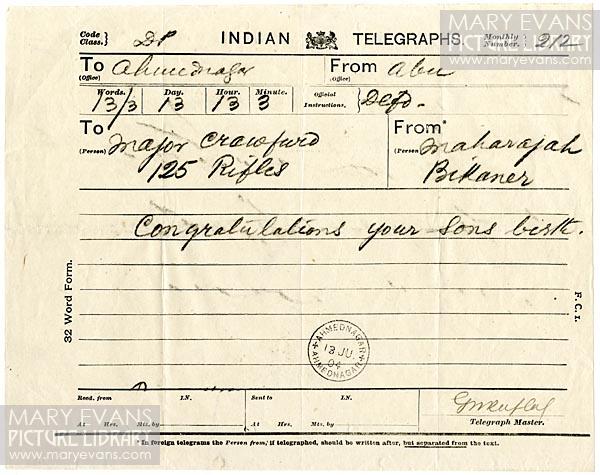 MARY EVANS
PICTURE LIBRARY
www.maryevans.com
Code Class.
INDIAN TELEGRAPHS
Monthly Number. 212
To (Office) Ahmednagar
From (Office) Abu
Words. Day. Hour. Minute.
13/3 13 13 3
Official Instructions.
To (Person) Major Crawfurd
125 Rifles
From (Person) Maharajah
Bikaner
Congratulations your sons birth.
32 Word Form.
F.C.I.
AHMEDNAGAR
13 JU.
04
AHMEDNAGAR
Recd. from I.N. Sent to I.N.
At Hrs. Mts. by At Hrs. Mts. by
Telegraph Master.
In foreign telegrams the Person from, if telegraphed, should be written after, but separated from the text.
MARY EVANS
PICTURE LIBRARY
www.maryevans.com